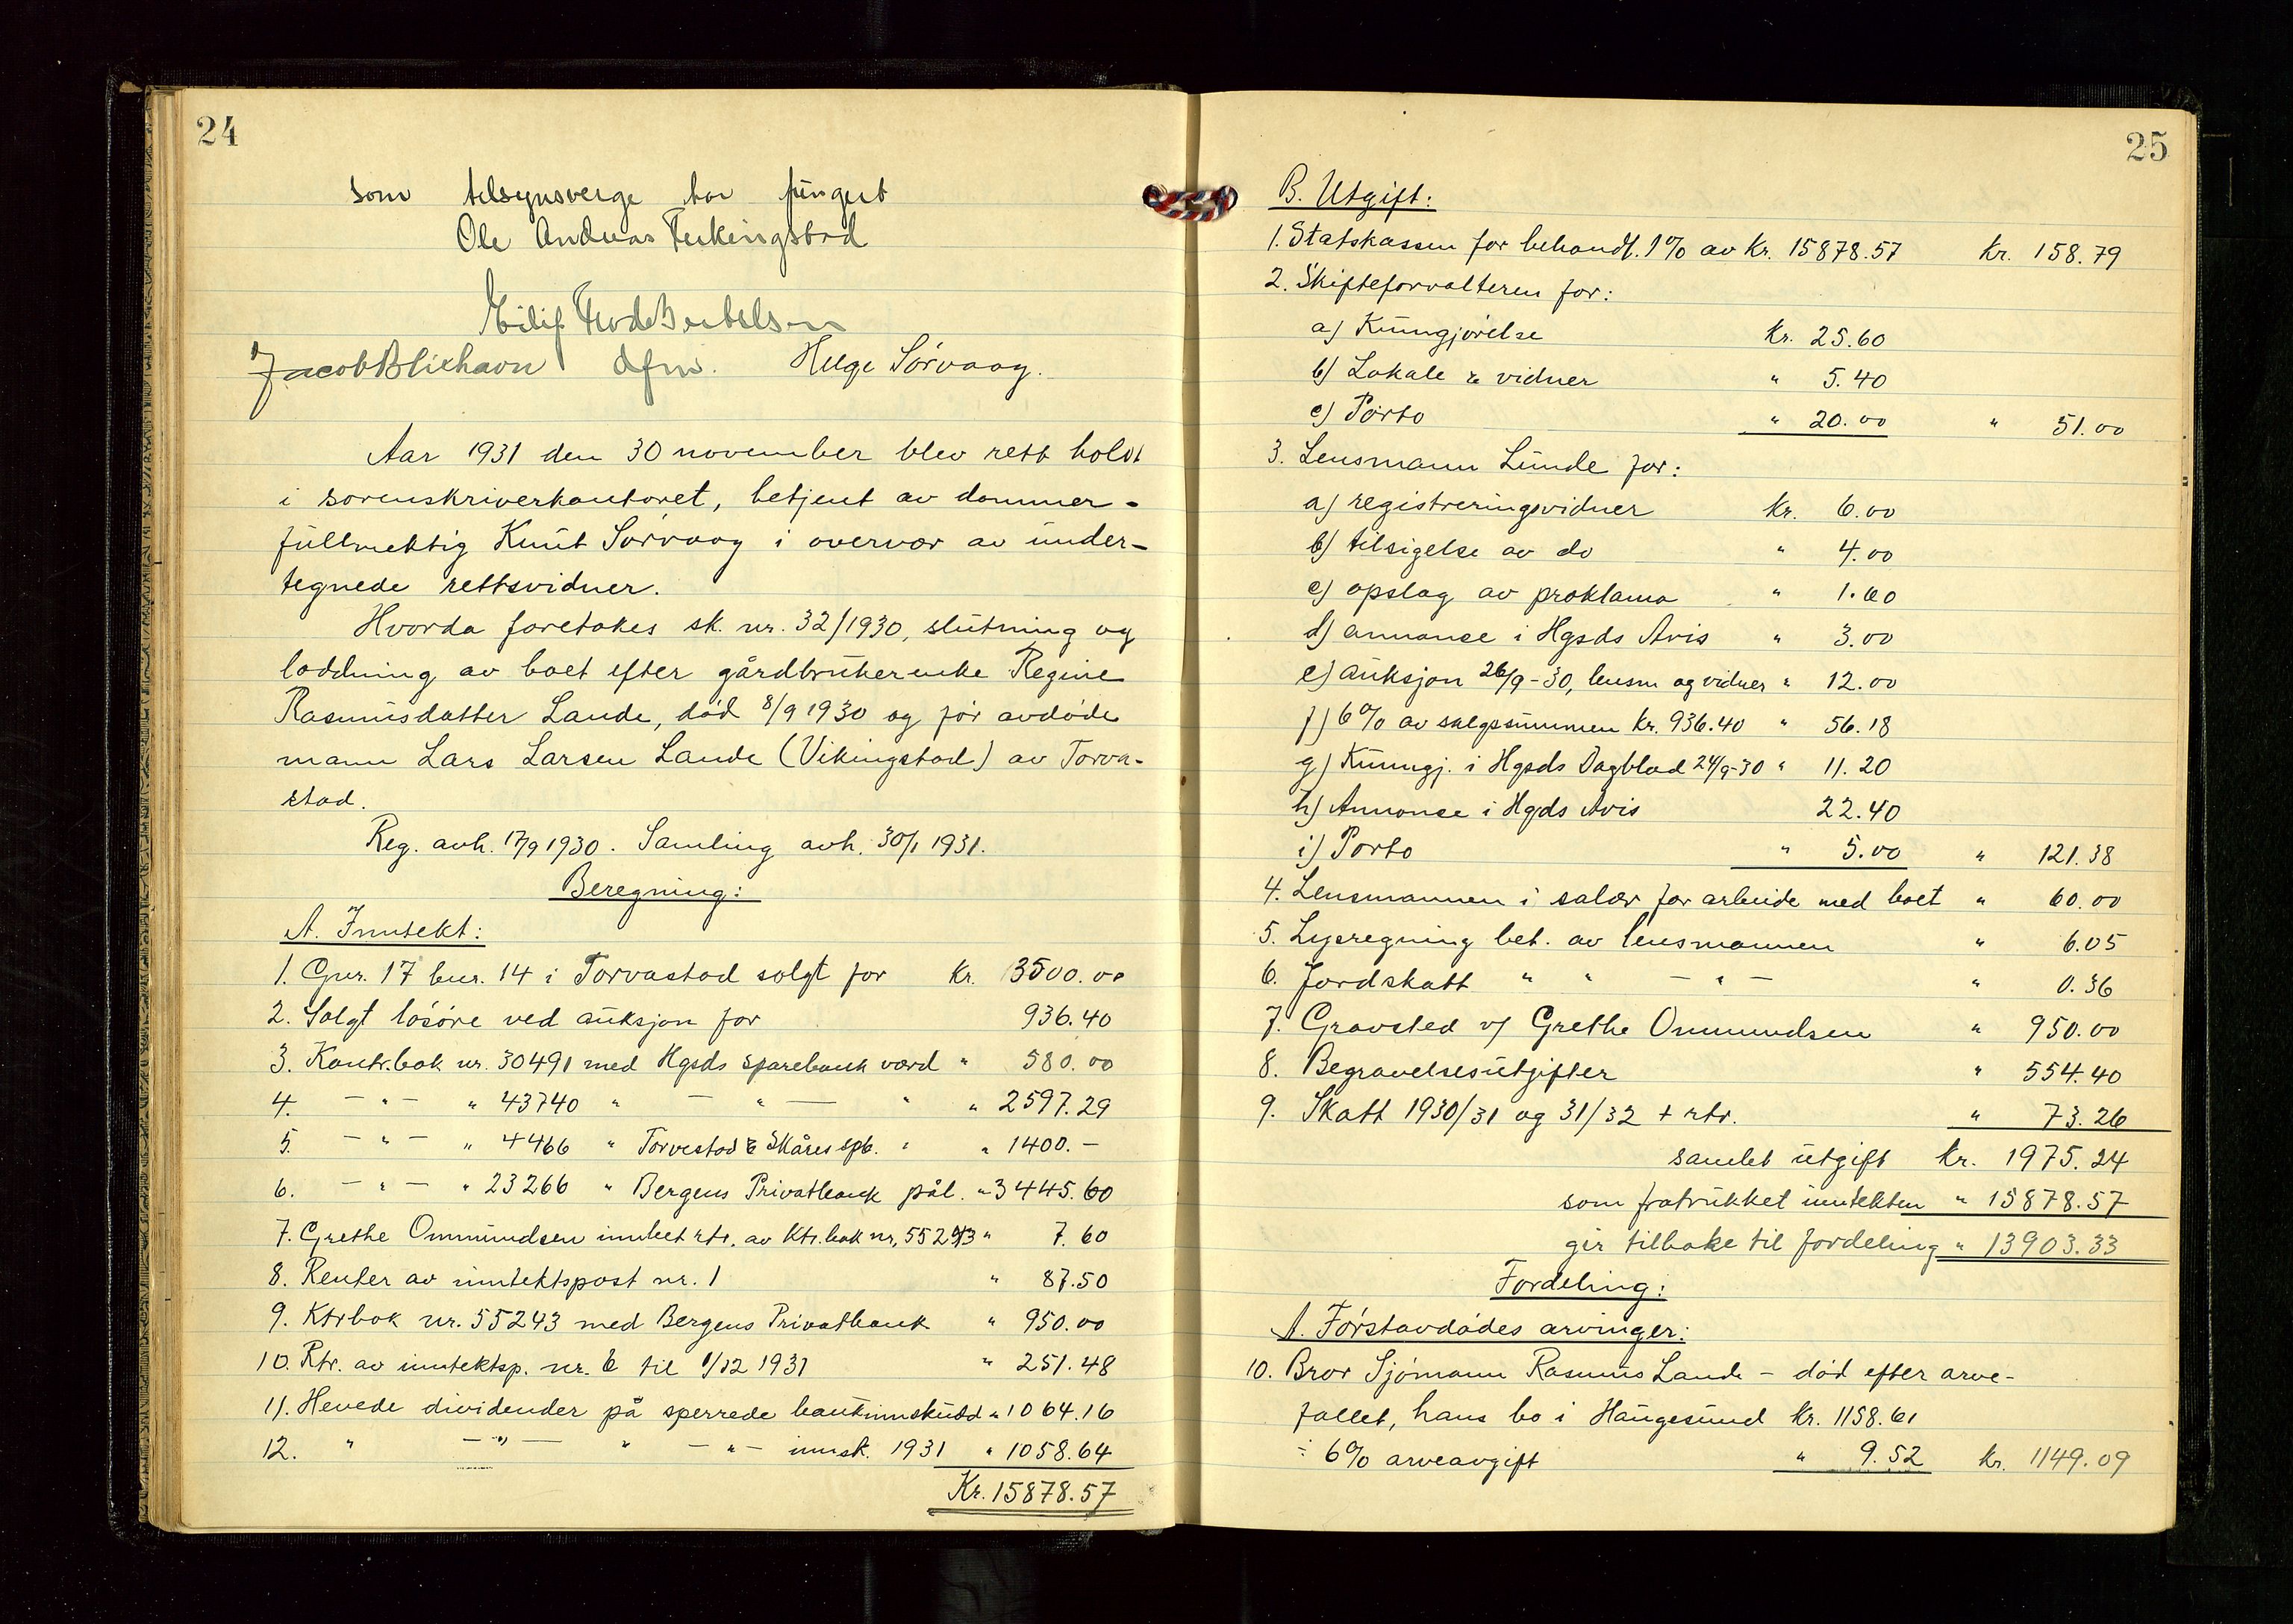 24
som tilsynsverge har fungert
Ole Andreas Ferkingstad
Eilif Frode Bertelsen
Jacob Blixhavn dfm. Helge Sörvaag.
Aar 1931 den 30 november blev rett holdt
i sorenskriverkontoret, betjent av dommer-
fullmektig Knut Sörvaag i overvær av under-
tegnede rettsvidner.
Hvorda foretokes sk. nr. 32/1930, slutning og
loddning av boet efter gårdbrukerenke Regine
Rasmusdatter Lande, död 8/9 1930 og för avdöde
mann Lars Larsen Lande (Vikingstad) av Torva-
stad.
Reg. avh. 17/9 1930. Samling avh. 30/1 1931.
Beregning:
A. Inntekt:
1. Gnr. 17 bnr. 14 i Torvastad solgt for Kr. 3500.00
2. Solgt lösöre ved auksjon for 936.40
3. Kontr.bok nr. 30491 med Hgsds sparebank værd " 580.00
4. — " — " 43740 " — " — " " 2597.29
5. — " — " 4466 " Torvestad & Skåres spb. " " 1400.-
6. — " — " 23266 " Bergens Privatbank pål. " 3445.60
7. Grethe Ommundsen innbet rtr. av Ktr.bok nr, 55243 " 7.60
8. Renter av inntektspost nr. 1 " 87.50
9. Ktrbok nr. 55243 med Bergens Privatbank " 950.00
10. Rtr. av inntektsp. nr. 6 til 1/12 1931 " 251.48
11. Hevede dividender på sperrede bankinnskudd " 1064.16
12. " — " — " — " — innsk. 1931 " 1058.64
Kr. 15878.57
25
B. Utgift:
1. Statskassen for behandl. 1% av Kr. 15878.57 Kr. 158.79
2. Skifteforvalteren for:
a) Kunngjörelse Kr. 25.60
b) Lokale & vidner " 5.40
c) Porto " 20.00 " 51.00
3. Lensmann Lunde for:
a) registreringsvidner Kr. 6.00
b) tilsigelse av do " 4.00
c) opslag av proklama " 1.60
d) annonse i Hgsds Avis " 3.00
e) auksjon 26/9-30, lensm og vidner " 12.00
f) 6% av salgssummen Kr. 936.40 " 56.18
g) Kunngj. i Hgsds Dagblad 24/9-30 " 11.20
h) Annonse i Hgds Avis 22.40
i) Porto " 5.00 " 121.38
4. Lensmannen i salær for arbeide med boet " 60.00
5. Lysregning bet. av lensmannen " 6.05
6. Jordskatt " " — " — " 0.36
7. Gravsted v/ Grethe Ommundsen " 950.00
8. Begravelsesutgifter " 554.40
9. Skatt 1930/31 og 31/32 + rtr. " 73.26
samlet utgift Kr. 1975.24
som fratrukket inntekten " 15878.57
gir tilbake til fordeling " 13903.33
Fordeling:
A. Förstavdödes arvinger:
10. Bror Sjömann Rasmus Lande - död efter arve-
fallet, hans bo i Haugesund Kr. 1158.61
÷ 6% arveavgift " 9.52 Kr. 1149.09